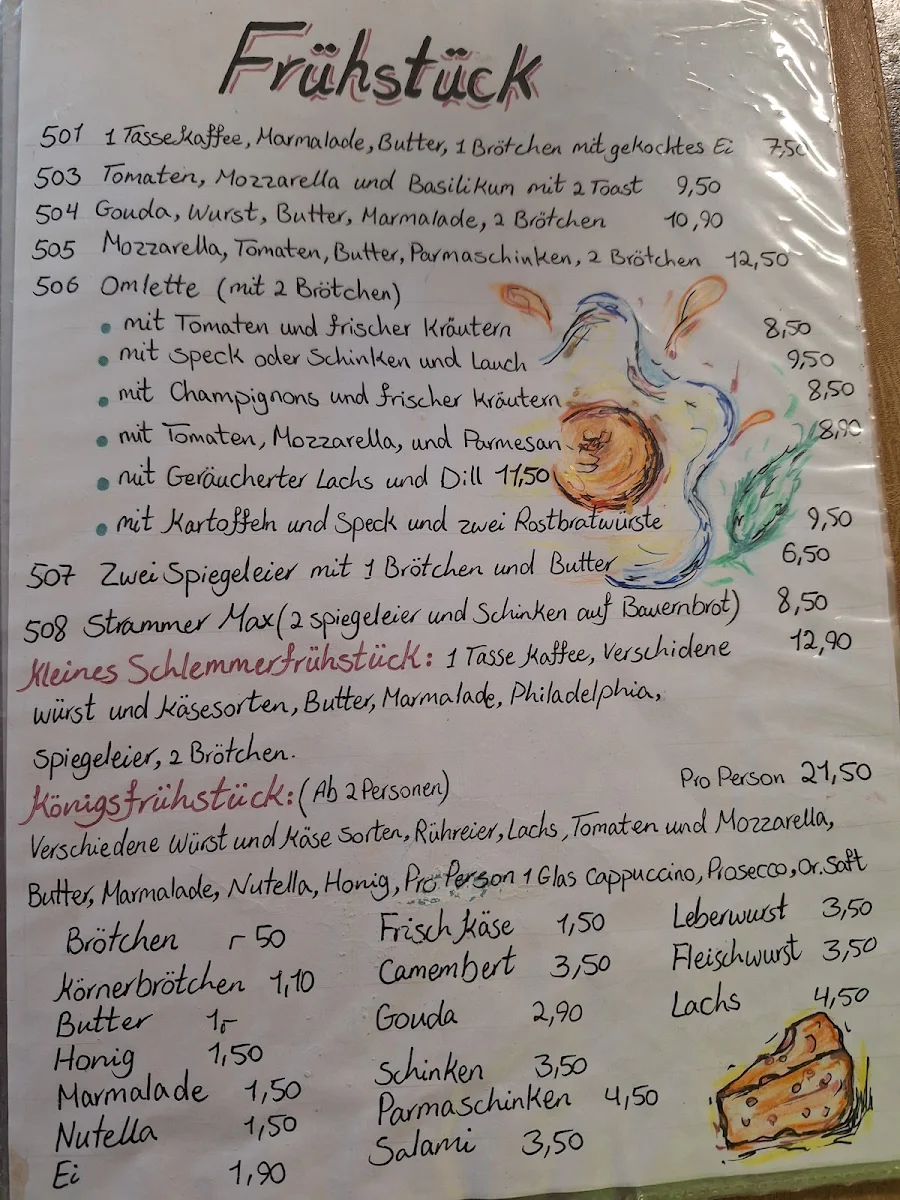 Frühstück
501 1 Tasse Kaffee, Marmalade, Butter, 1 Brötchen mit gekochtes Ei 7,50
503 Tomaten, Mozzarella und Basilikum mit 2 Toast 9,50
504 Gouda, Wurst, Butter, Marmelade, 2 Brötchen 10,90
505 Mozzarella, Tomaten, Butter, Parmaschinken, 2 Brötchen 12,50
506 Omlette (mit 2 Brötchen)
• mit Tomaten und frischer Kräutern 8,50
• mit Speck oder Schinken und Lauch 9,50
• mit Champignons und frischer Kräutern 8,50
• mit Tomaten, Mozzarella, und Parmesan 8,90
• mit Geräucherter Lachs und Dill 11,50
• mit Kartoffeln und Speck und zwei Rostbratwürste 9,50
507 Zwei Spiegeleier mit 1 Brötchen und Butter 6,50
508 Strammer Max (2 spiegeleier und Schinken auf Bauernbrot) 8,50
Kleines Schlemmerfrühstück: 1 Tasse Kaffee, Verschidene 12,90
würst und Käsesorten, Butter, Marmalade, Philadelphia,
Spiegeleier, 2 Brötchen.
Königsfrühstück: (Ab 2 Personen) Pro Person 21,50
Verschiedene Würst und Käse Sorten, Rühreier, Lachs, Tomaten und Mozzarella,
Butter, Marmalade, Nutella, Honig, Pro Person 1 Glas Cappuccino, Prosecco, Or. Saft
Brötchen -50 Frisch Käse 1,50 Leberwurst 3,50
Körnerbrötchen 1,10 Camembert 3,50 Fleischwurst 3,50
Butter 1,- Gouda 2,90 Lachs 4,50
Honig 1,50 Schinken 3,50
Marmalade 1,50 Parmaschinken 4,50
Nutella 1,50 Salami 3,50
Ei 1,90